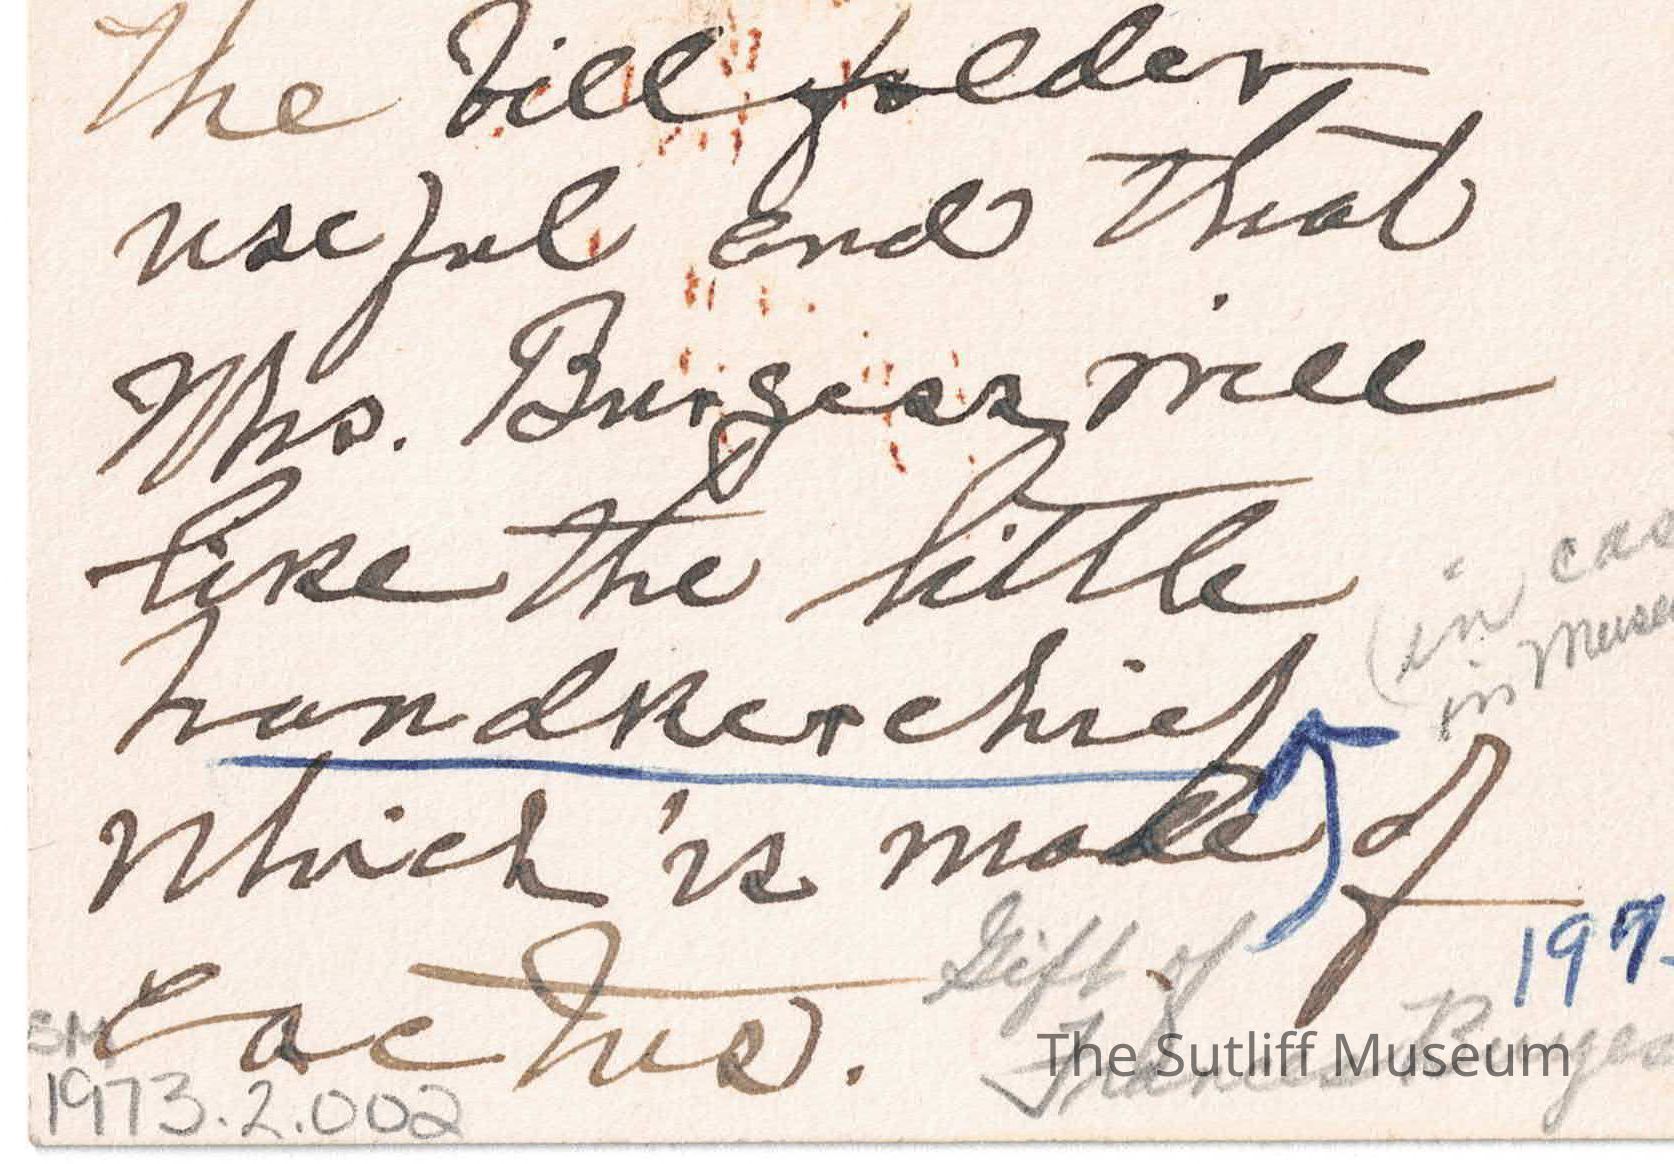 The bill folder
useful and that
Mrs. Burgess will
like the little
handkerchief
(in cas
in Muse
which is made of
cactus.
Gift of
Frances Burgess
197
SM
1973.2.002
The Sutliff Museum